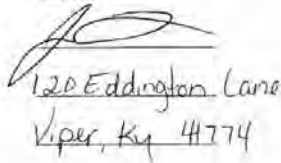 120 Eddington Lane
Viper, Ky 41774